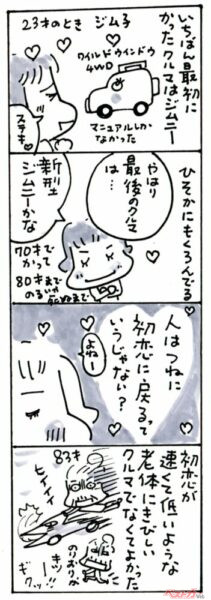 いちばん最初に
かったクルマはジムニー
23才のとき ジム子
ワイルドウインドウ
4WD
マニュアルしか
なかった
ステキ
ひそかにもくろんでる
やはり
最後のクルマ
は…
新型
ジムニーかな
70才で
かって
80才まで
のる
人はつねに
初恋に戻るって
いうじゃない?
よねー
初恋が
速くて低いような
老体にきびしい
クルマでなくてよかった
83才
ヒイイイ
のりおりが
キツ…!!
ギクッ…!!